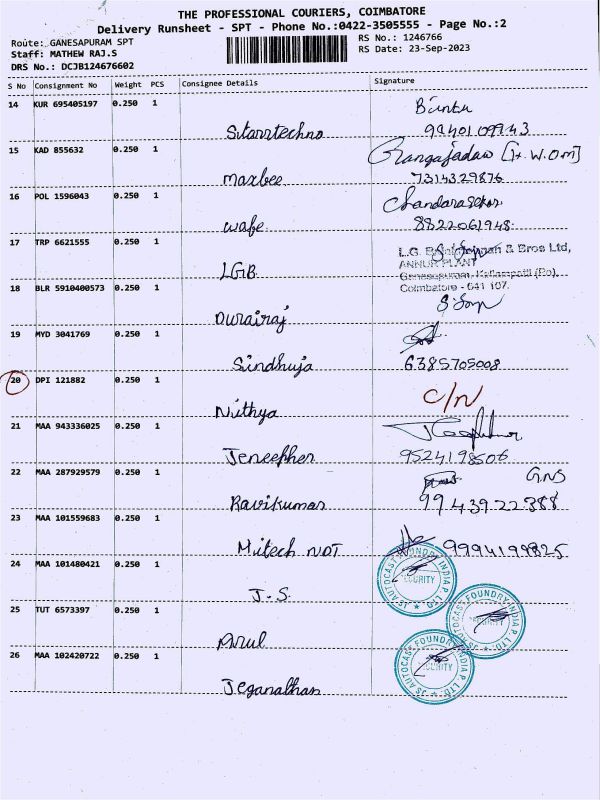 THE PROFESSIONAL COURIERS, COIMBATORE
Delivery Runsheet - SPT - Phone No.:0422-3505555 - Page No.:2
Route: GANESAPURAM SPT RS No.: 1246766
Staff: MATHEW RAJ.S RS Date: 23-Sep-2023
DRS No.: DCJB124676602
S No Consignment No Weight PCS Consignee Details Signature
14 KUR 695405197 0.250 1 Bintu
Starrtechno 9940109943
15 KAD 855632 0.250 1
maxbee 7314329876
16 POL 1596043 0.250 1 Chandarasekar
wafe 8822061948
17 TRP 6621555 0.250 1 L.G. & Bros Ltd,
ANNUR PLANT
LGB Ganesapuram, (Po),
18 BLR 5910400573 0.250 1 Coimbatore - 641 107.
Durairaj
19 MYD 3041769 0.250 1
Sindhuja 6385705008
20 DPI 121882 0.250 1 C/N
Nithya
21 MAA 943336025 0.250 1
Jeneepher 9524198506
22 MAA 287929579 0.250 1 GNS
Ravikumar 9943922388
23 MAA 101559683 0.250 1
Mitech NDT 9994199825
24 MAA 101480421 0.250 1 JS AUTOCAST FOUNDRY INDIA P. LTD. SECURITY
J.S.
25 TUT 6573397 0.250 1 JS AUTOCAST FOUNDRY INDIA P. LTD.
Arul
26 MAA 102420722 0.250 1 JS AUTOCAST FOUNDRY INDIA P. LTD. SECURITY
Jeganathan